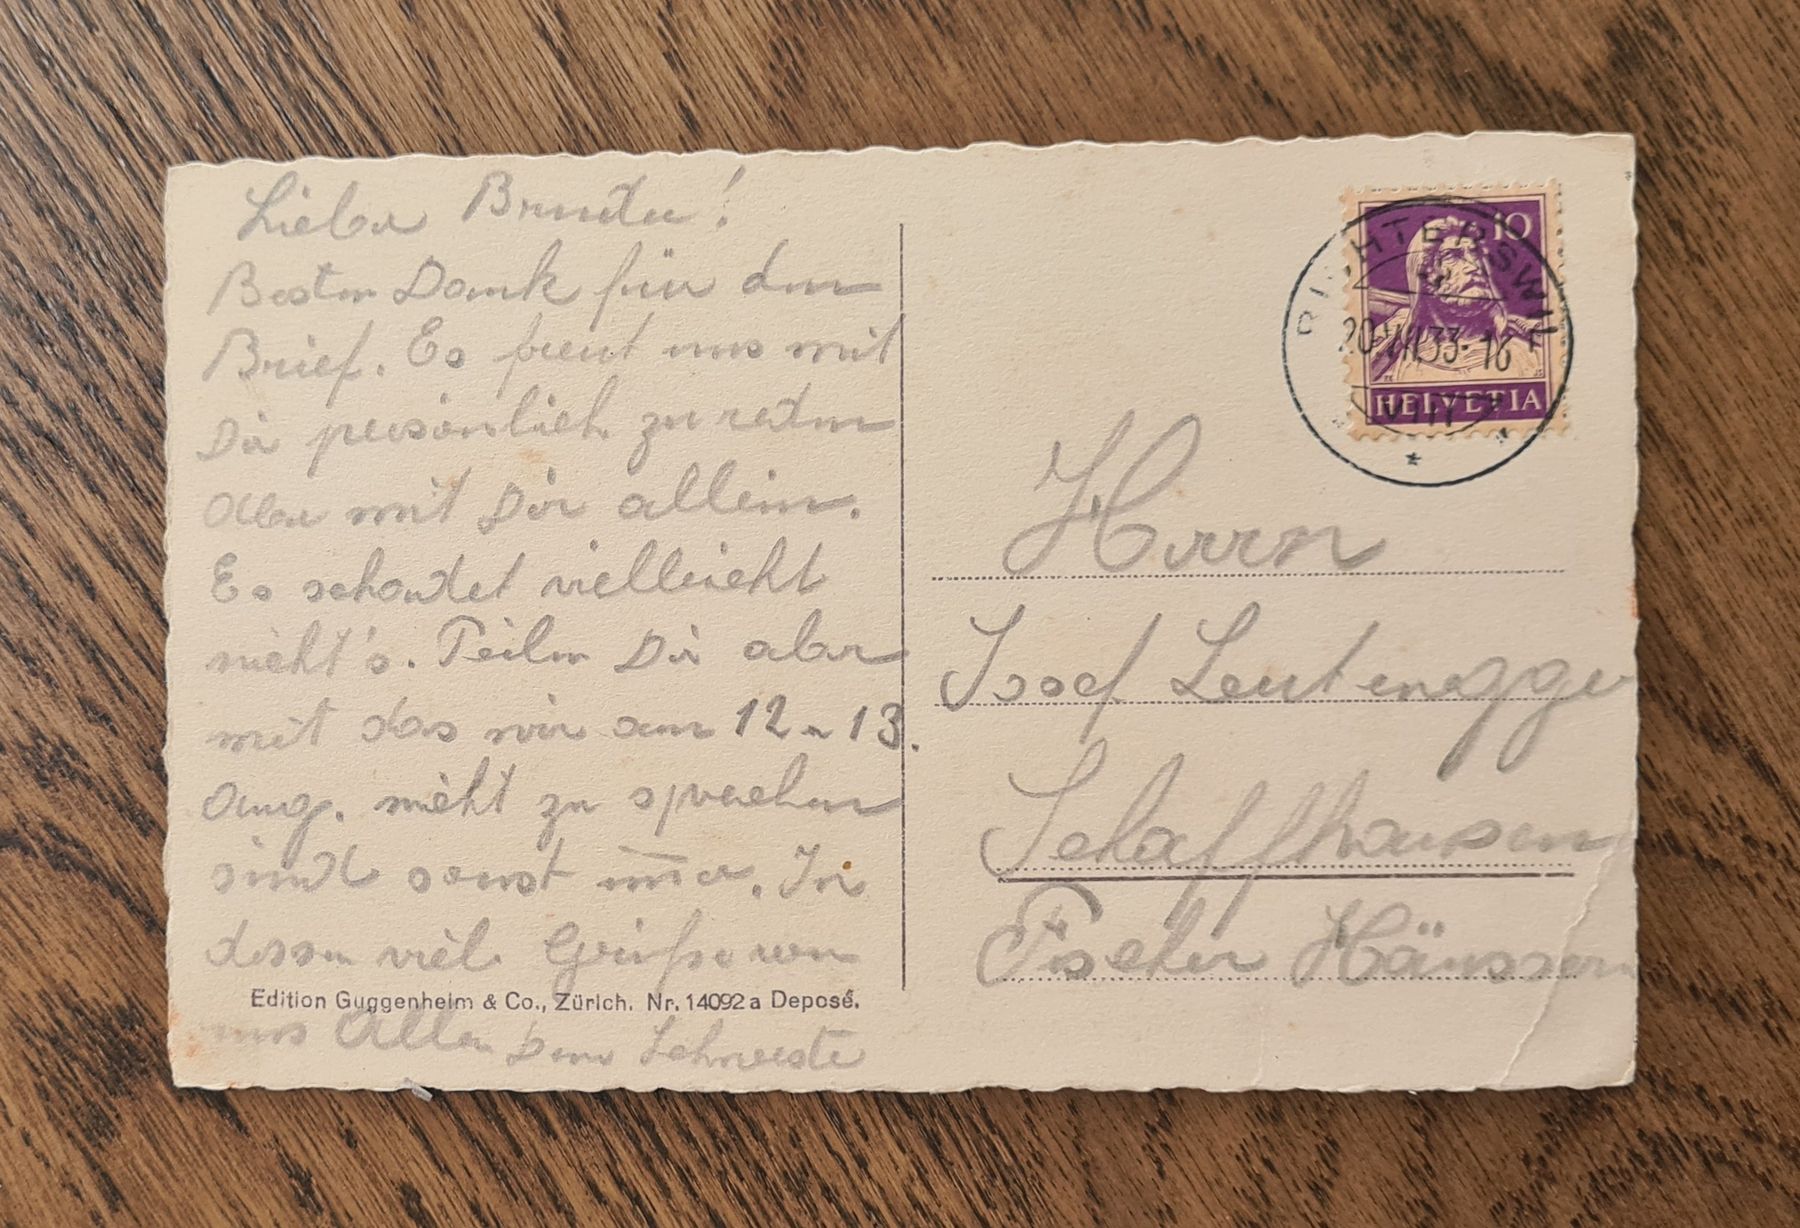 Lieber Bruder!
Besten Dank für den
Brief. Es freut uns mit
Dir persönlich zu reden
Aber mit Dir allein.
Es schadet vielleicht
nicht's. Teilen Dir aber
mit das wir am 12 - 13.
Aug. nicht zu sprechen
sind sonst im̅er. In
dessen viel Grüße von
uns Allen Deine Schweste
Edition Guggenheim & Co., Zürich. Nr. 14092 a Deposé.
RICHTERSWIL
20.VII.33.16
10
HELVETIA
Herrn
Josef Leutenegger
Schaffhausen
Fischer Häussern